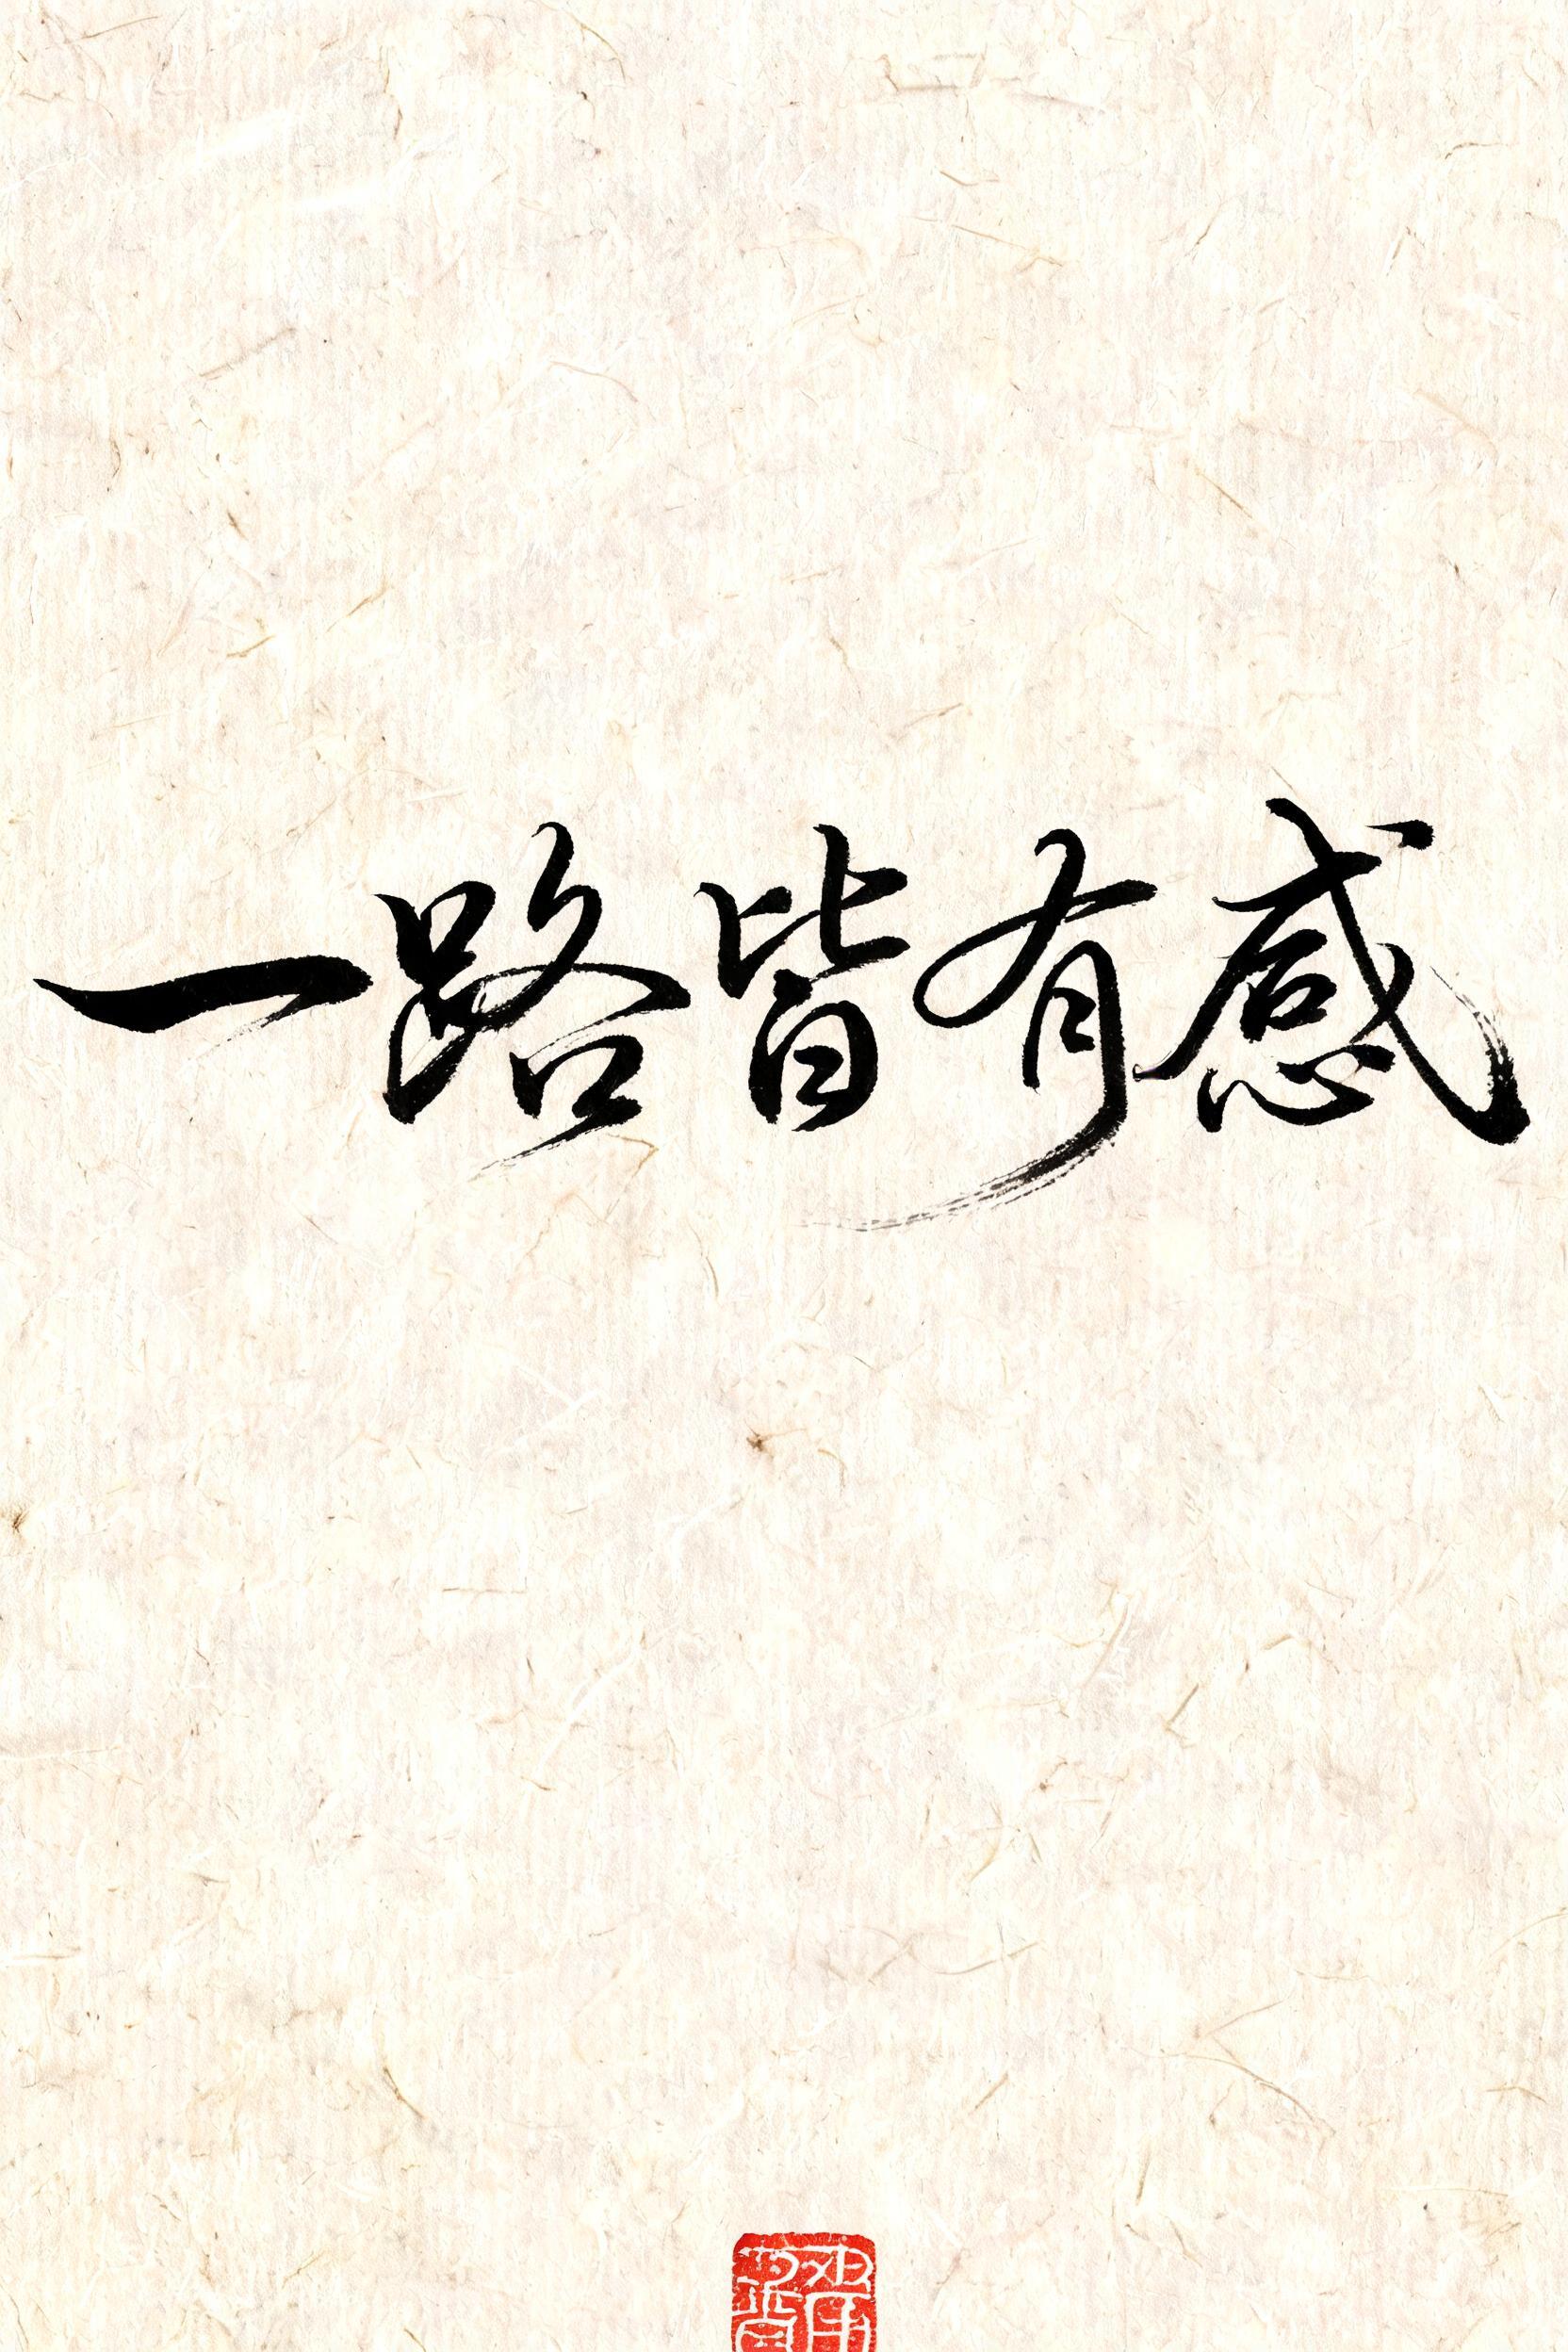 一路皆有感